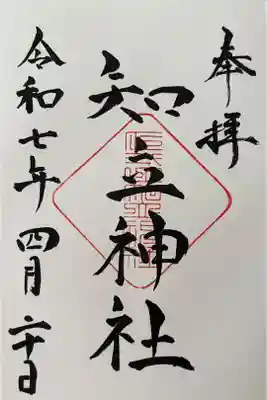 奉拝
知立神社
令和七年四月二十日